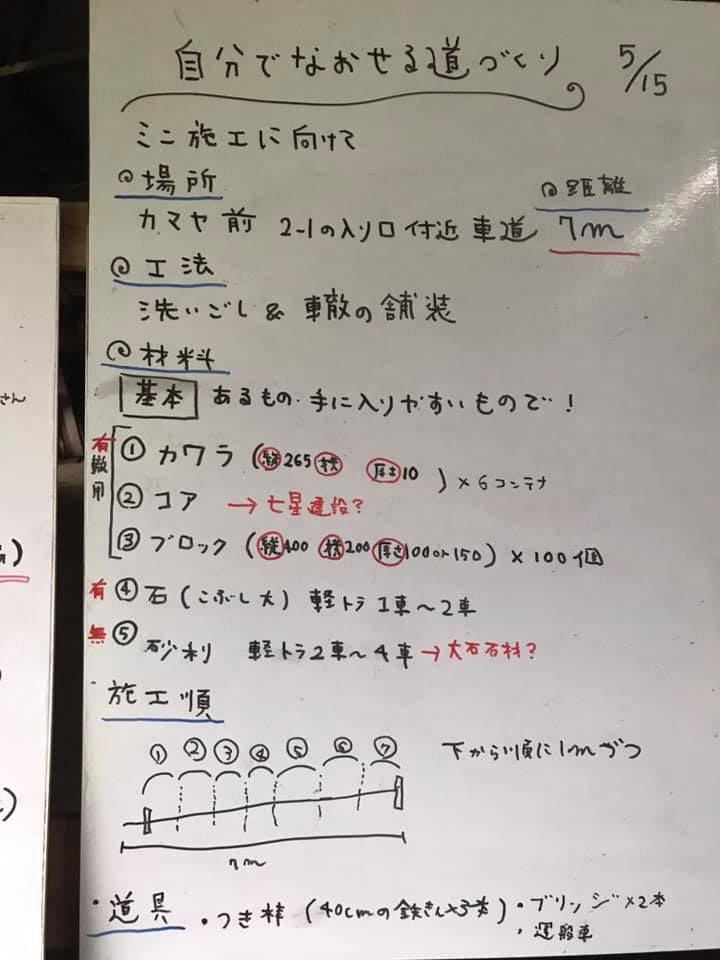 自分でなおせる道づくり 5/15
ミニ施工に向けて
◎場所 ◎距離
カマヤ前 2-1の入り口付近車道 7m
◎工法
洗いごし & 車轍の舗装
◎材料
基本 あるもの・手に入りやすいもので!
有 轍用
① カワラ (縦265 横 厚さ10) ×6コンテナ
② コア →七星建設?
③ ブロック (縦400 横200 厚さ100or150) ×100個
有 ④ 石 (こぶし大) 軽トラ1車〜2車
無 ⑤ 砂利 軽トラ2車〜4車 →大石石材?
・施工順
① ② ③ ④ ⑤ ⑥ ⑦ 下から順に1mずつ
7m
・道具 ・つき棒 (40cmの鉄きん×3本) ・ブリッジ×2本
・運搬車
さん
)